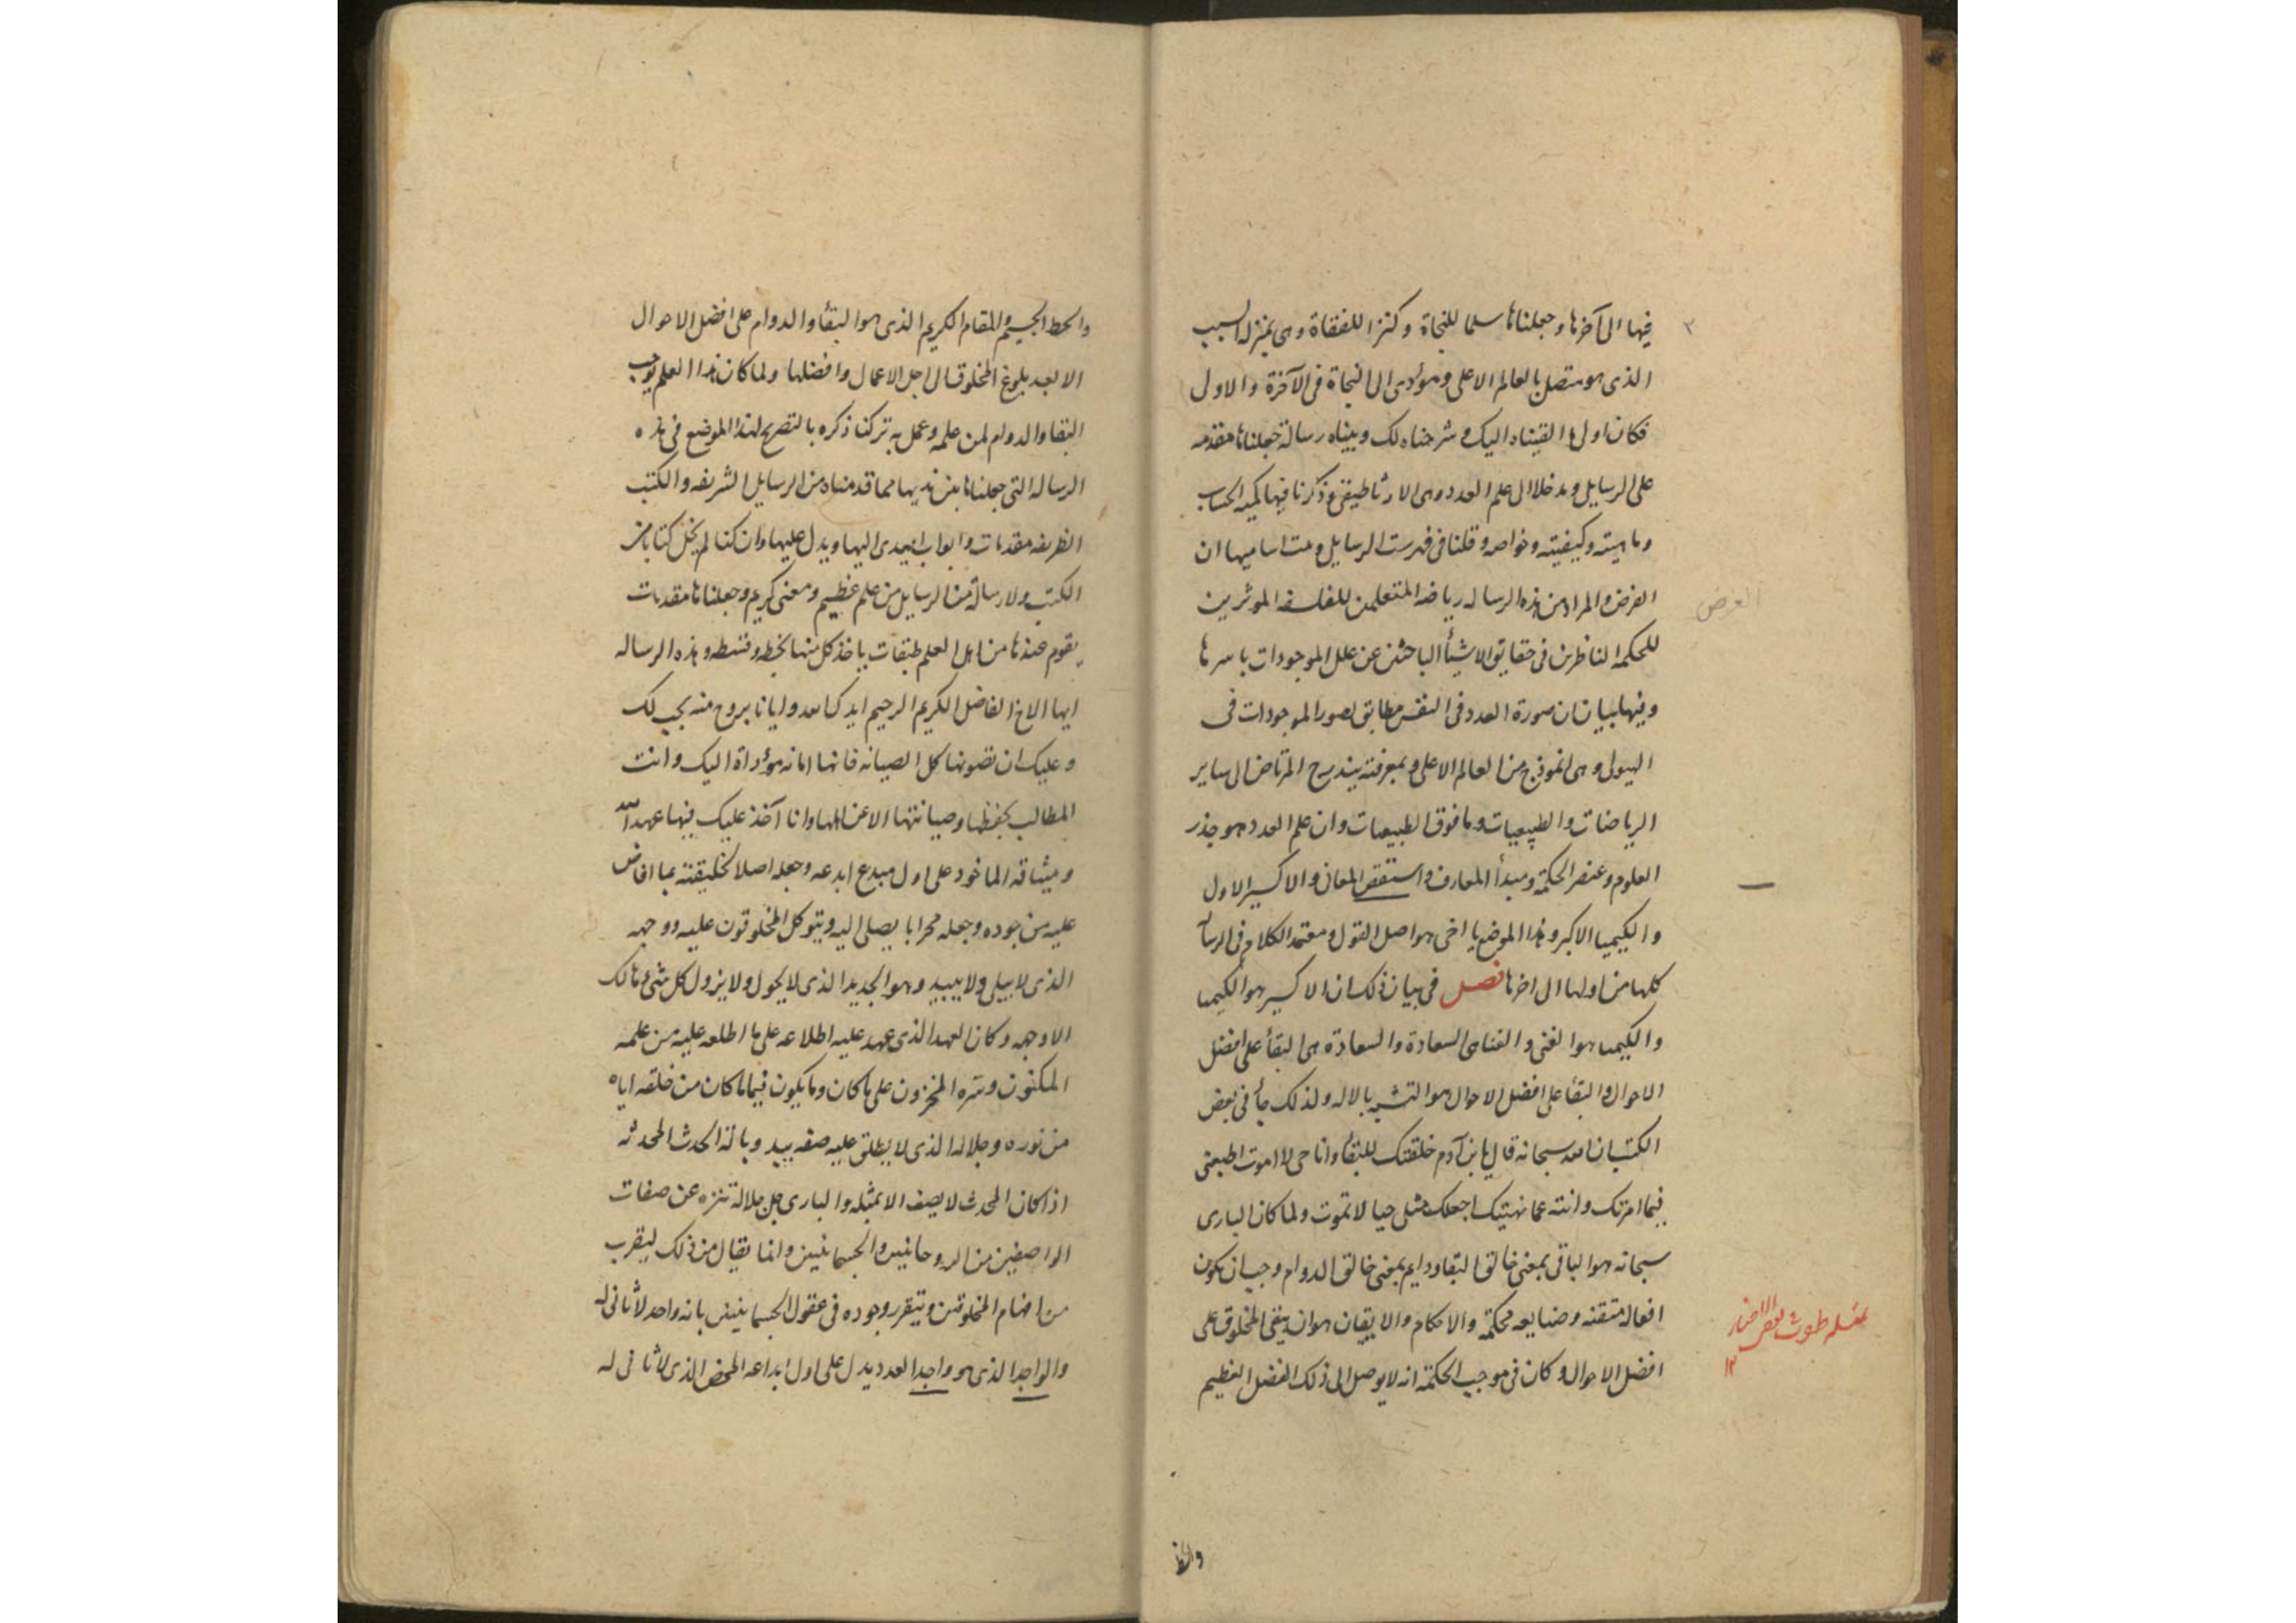 فيها الى آخرها وجعلناها سلما للنجاة وكنزا للفقاة وهى بمنزلة السبب
الذى هو متصل بالعالم الاعلى ومؤدى الى النجاة فى الآخرة والاولى
فكان اول ما القيناه اليك وشرحناه لك وبيناه رسالة جعلناها مقدمه
على الرسايل ومدخلا الى علم العدد وهى الارثماطيقى وذكرنا فيها كميه الحساب
وماهيته وكيفيته وخواصه وقلنا فى فهرست الرسايل ومت اساميها ان
الغرض والمراد من هذه الرساله رياضه المتعلمين للفلسفه الموثرين
للحكمه الناظرين فى حقايق الاشيأ الباحثين عن علل الموجودات باسرها
وفيها بيان ان صورة العدد فى النفس مطابق لصور الموجودات فى
الهيولى وهى انموذج من العالم الاعلى وبمعرفته يتدرج المرتاض الى ساير
الرياضات والطبيعيات وما فوق الطبيعيات وان علم العدد هو جذر
العلوم وعنصر الحكمة ومبدأ المعارف واستقص المعانى والاكسير الاول
والكيميا الاكبر وهذا الموضع يا اخى هو اصل القول ومعتمد الكلام فى الرسآ
كلها من اولها الى اخرها فصل فى بيان ذلك ان الاكسير هو الكيميا
والكيميا هو الغنى والغنا هى السعادة والسعادة هى البقأ على افضل
الاحوال والبقأ على افضل الاحوال هو التشبه بالاله ولذلك جأ فى بعض
الكتب ان الله سبحانه قال يا بن آدم خلقتك للبقأ وانا حى لا اموت اطيعنى
فيما امرتك وانته عما نهيتك اجعلك مثلى حيا لا تموت ولما كان البارى
سبحانه هو الباقى بمعنى خالق البقا ودايم بمعنى خالق الدوام وجب ان يكون
افعاله متقنه وصنايعه محكمة والاحكام والايقان هو ان يبقى المخلوق على
افضل الاحوال وكان فى موجب الحكمة انه لا يوصل الى ذلك الفضل العظيم
٣
الغرض
والحظ
والحظ الجسيم والمقام الكريم الذى هو البقأ والدوام على افضل الاحوال
الا بعد بلوغ المخلوق الى اجل الاعمال وافضلها ولما كان هذا العلم يوجب
البقا والدوام لمن علمه وعمل به تركنا ذكره بالتصريح لهذا الموضع فى هذه
الرساله التى جعلناها بين يديها مما قدمناه من الرسايل الشريفه والكتب
الظريفه مقدمات وابواب ايهدى اليها ويدل عليها وان كنا لم نخل كتابا من
الكتب ولا رسالة من الرسايل من علم عظيم ومعنى كريم وجعلناها مقدمات
يقوم عندها من اهل العلم طبقات ياخذ كل منها بحظه وقسطه وهذه الرساله
ايها الاخ الفاضل الكريم الرحيم ايدك الله وايانا بروح منه يجب لك
وعليك ان تصونها كل الصيانه فانها امانه مؤداة اليك وانت
المطالب بحفظها وصيانتها الا عن اهلها وانا آخذ عليك فيها عهد الله
وميثاقه الماخوذ على اول مبدع ابدعه وجعله اصلا لخليقته بما افاض
عليه من جوده وجعله محرابا يصلى اليه ويتوكل المخلوقون عليه ووجهه
الذى لا يبلى ولا يبيد وهو الجديد الذى لا يحول ولا يزول كل شئ هالك
الا وجهه وكان العهد الذى عهد عليه اطلاعه على ما اطلعه عليه من علمه
المكنون وسره المخزون على ما كان وما يكون فيما ما كان من خلقه اياه
من نوره وجلاله الذى لا يطلق عليه صفه يبيد وبا له الحدث المحدثه
اذا كان المحدث لا يصف الا بمثله والبارى جل جلاله تنزه عن صفات
الواصفين من الروحانيين والجسمانيين وانما يقال من ذلك ليقرب
من افهام المخلوقين ويتقرر وجوده فى عقول الجسمانيين بانه واحد لا ثانى له
والواحد الذى هو واحد العدد يدل على اول ابداعه المحض الذى لا ثانى له